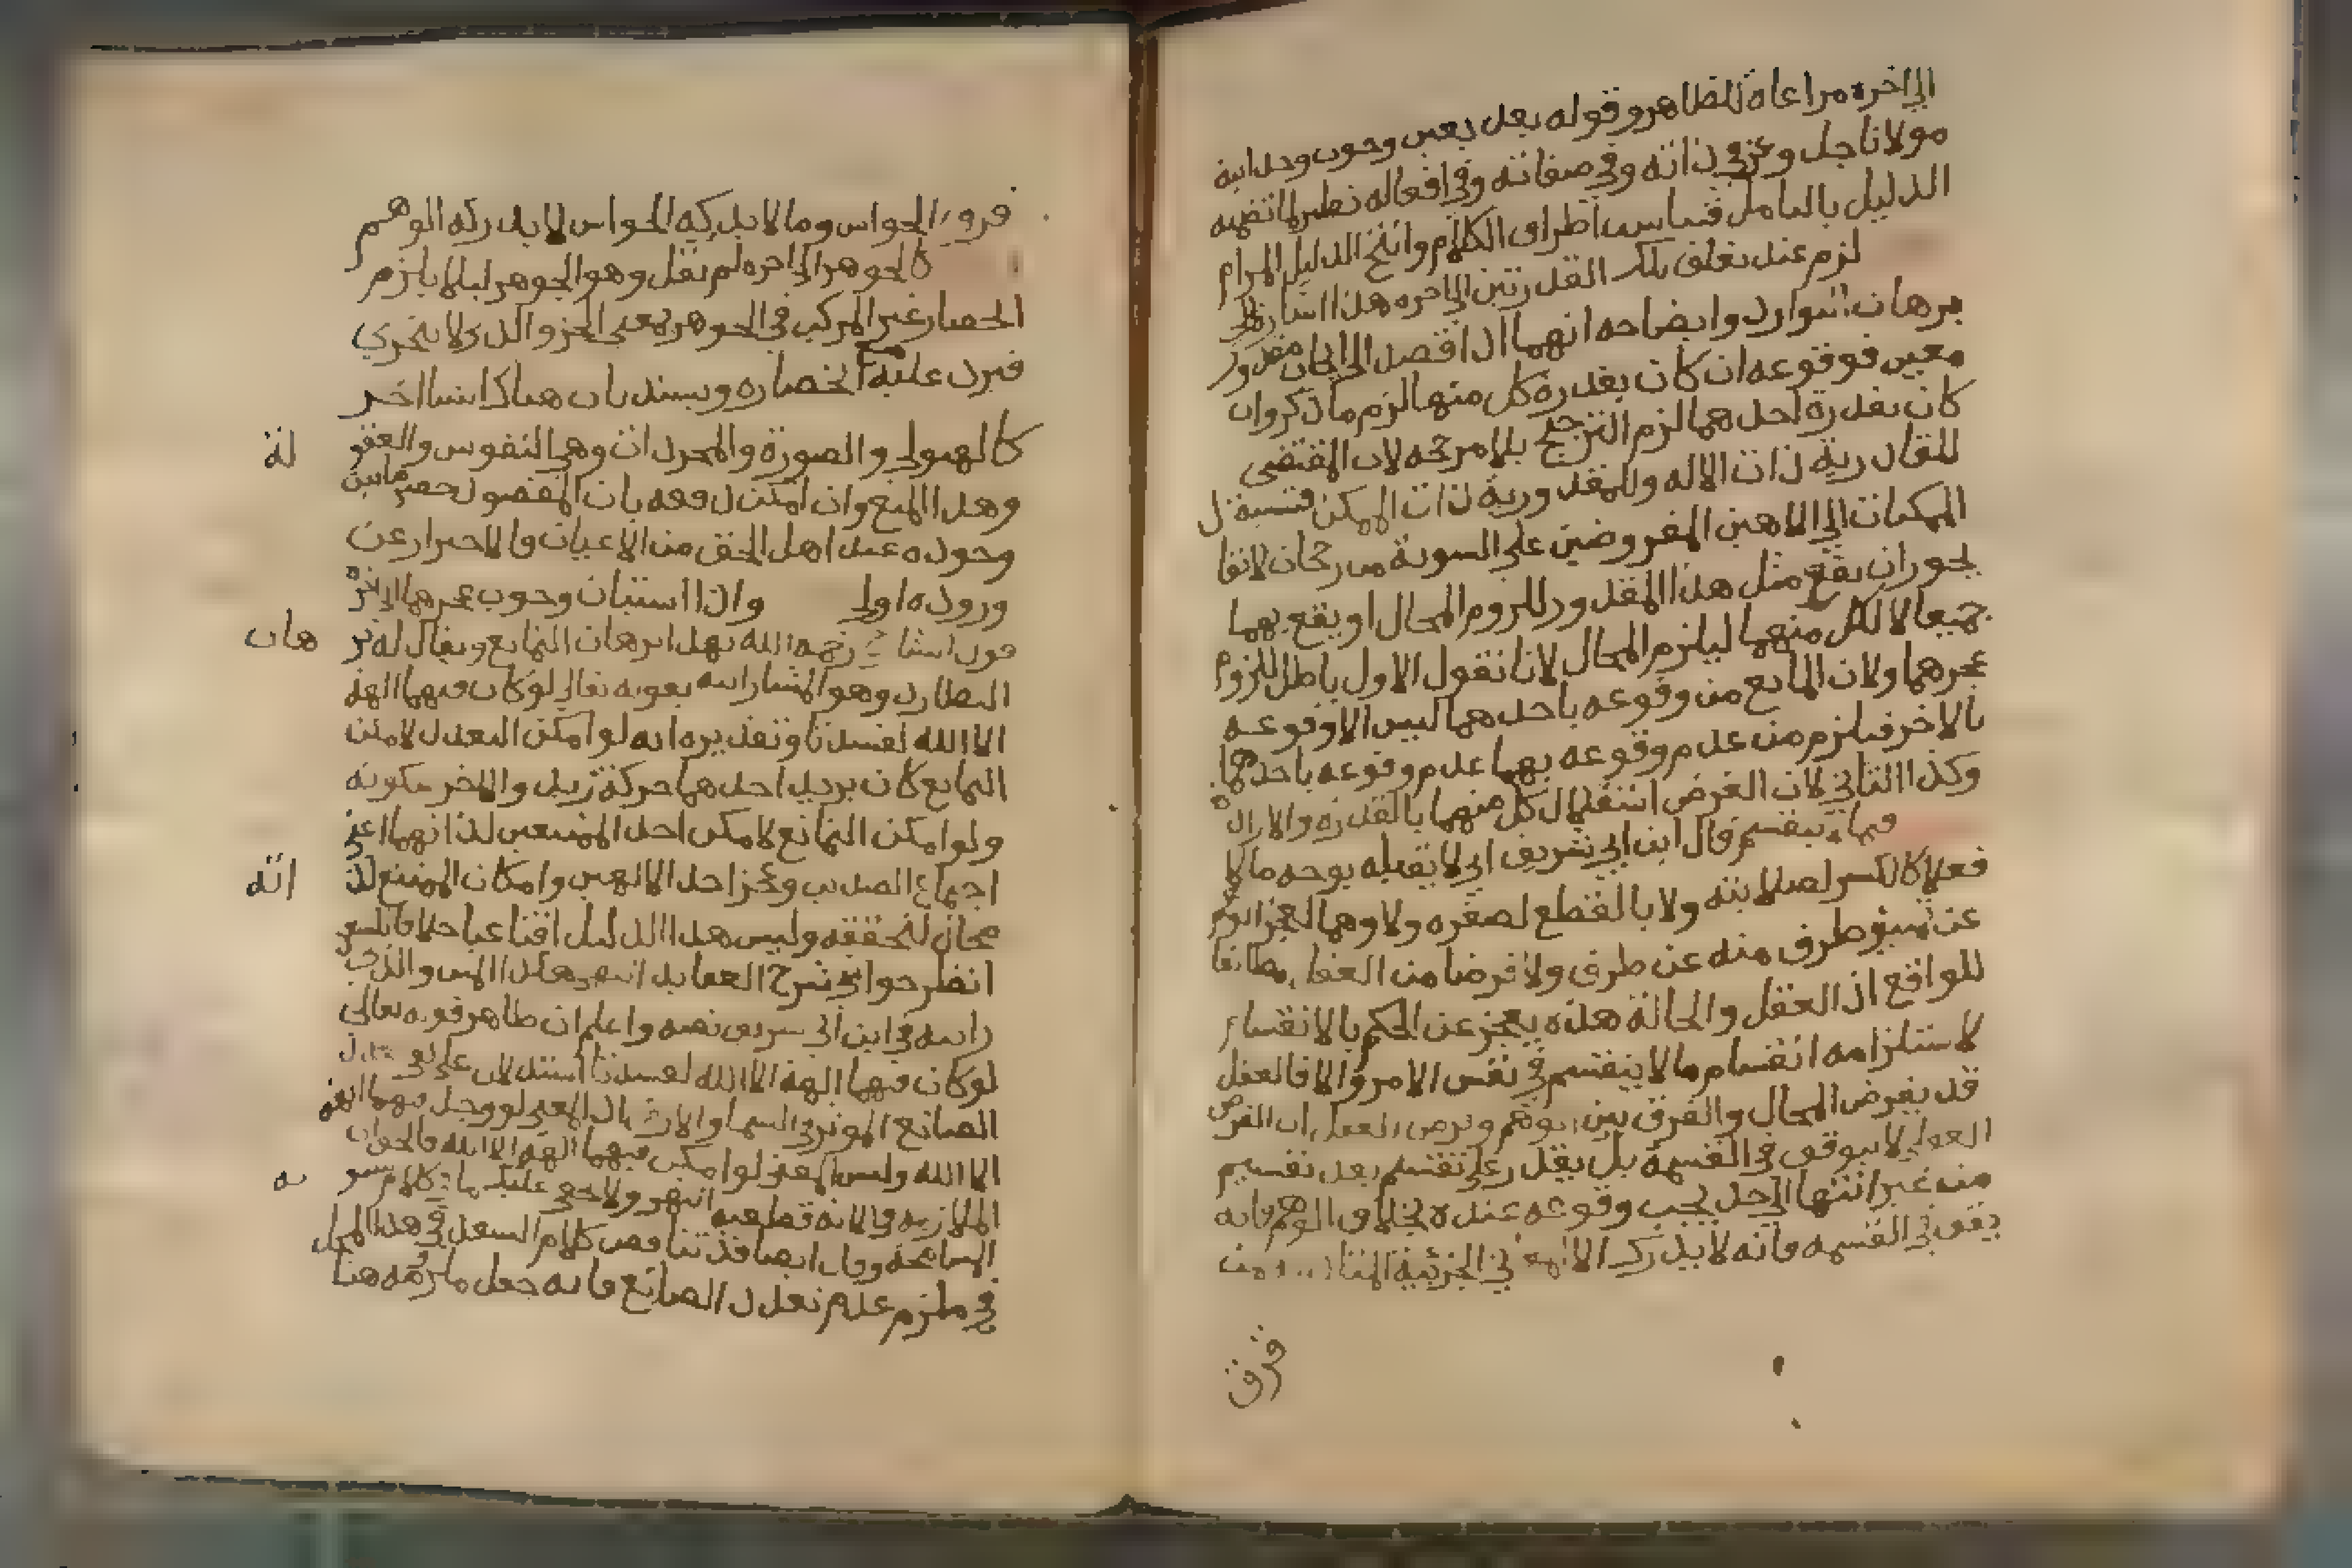 الى اخره مراعاة للظاهر وقوله بعد يعين وجوب وحدانية
مولانا جل وعز في ذاته وفي صفاته وفي افعاله نظير لما تضمنه
الدليل بالتامل فتناسب اطراف الكلام وانتج الدليل المرام
لزم عند تعلق تلك القدرتين الى اخره هذا اشارة الى
برهان التوارد وايضاحه انهما اذا قصدا الى ايجاد مقدور
معين فوقوعه ان كان بقدرة كل منهما لزم ما ذكر وان
كان بقدرة احدهما لزم الترجيح بلا مرجح لان المقتضى
للقادرية ذات الاله وللمقدورية ذات الممكن فنسبة
الممكنات الى الالاهين المفروضين على السوية من رجحان لا يقال
يجوز ان يقع مثل هذا المقدور للزوم المحال او يقع بهما
جميعا لا لكل منهما ليلزم المحال لانا نقول الاول باطل للزوم
عجزهما ولان المانع من وقوعه باحدهما ليس الا وقوعه
بالاخر فيلزم من عدم وقوعه بهما عدم وقوعه باحدهما
وكذا الثاني لان الغرض استقلال كل منهما بالقدرة والارادة
فيما لا ينقسم قال ابن ابي شريف اي لا يقبله بوجه ما لا
فعلا كالكسر لصلابته ولا بالقطع لصغره ولا وهما لعجز الوهم
عن تمييز طرف منه عن طرف ولا فرضا من العقل مطابقا
للواقع اذ العقل والحالة هذه يعجز عن الحكم بالانقسام
لاستلزامه انقسام ما لا ينقسم في نفس الامر والا فالعقل
قد يفرض المحال والفرق بين الوهم وفرض العقل ان الفرض
العقلي لا يتوقف في القسمة بل يقدر على تقسيم بعد تقسيم
من غير انتها الى حد يجب وقوعه عنده بخلاف الوهم فانه
يقف في القسمه فانه لا يدرك الا المعاني الجزئية المتادية من
فرق
فرق الحواس وما لا يدركه الحواس لا يدركه الوهم
كالجوهر الى اخره لم يقل وهو الجوهر ليلا يلزم
انحصار غير المركب في الجوهر بمعنى الجزو الذي لا يتجزي
فيرد عليه منع انحصاره ويستند بان هناك اشيا اخر
كالهيولى والصورة والمجردات وهي النفوس والعقو لة
وهذا المنع وان امكن دفعه بان المقصود حصر ما ثبت
وجوده عند اهل الحق من الاعيان فالاحتراز عن
وروده اولى واذا استبان وجوب عجزهما الى اخره
قول اشار رحمه الله بهذا البرهان التمانع ويقال له بر هان
التطارد وهو المشار اليه بقوله تعالى لو كان فيهما الهة
الا الله لفسدتا وتقديره انه لو امكن التعدد لامكن
التمانع كان يريد احدهما حركة زيد والاخر سكونه
ولو امكن التمانع لامكن احد الممتنعين لذاتهما اعني
اجتماع الضدين وعجز احد الالهين وامكان الممتنع لذ اته
محال لتحققه وليس هذا الدليل اقناعيا خلافا للسعد
انظر حواشي شرح العقايد انتهى هكذا المس والذي
رايته في ابن ابي شريف نصه واعلم ان ظاهر قوله تعالى
لو كان فيهما الهة الا الله لفسدتا استدلال على نفي تعدد
الصانع الموثر في السما والارض اذ المعنى لو وجد فيهما الهة
الا الله وليس المعنى لو امكن فيهما الهة الا الله فالحق ان
الملازمة في الاية قطعية انتهى ولا يخفى عليك ما في كلام سو به
المسامحة وقال ايضا قد تناقض كلام السعد في هذا المحل
في ملزم عدم تعدد الصانع فانه جعل ملزومه هنا